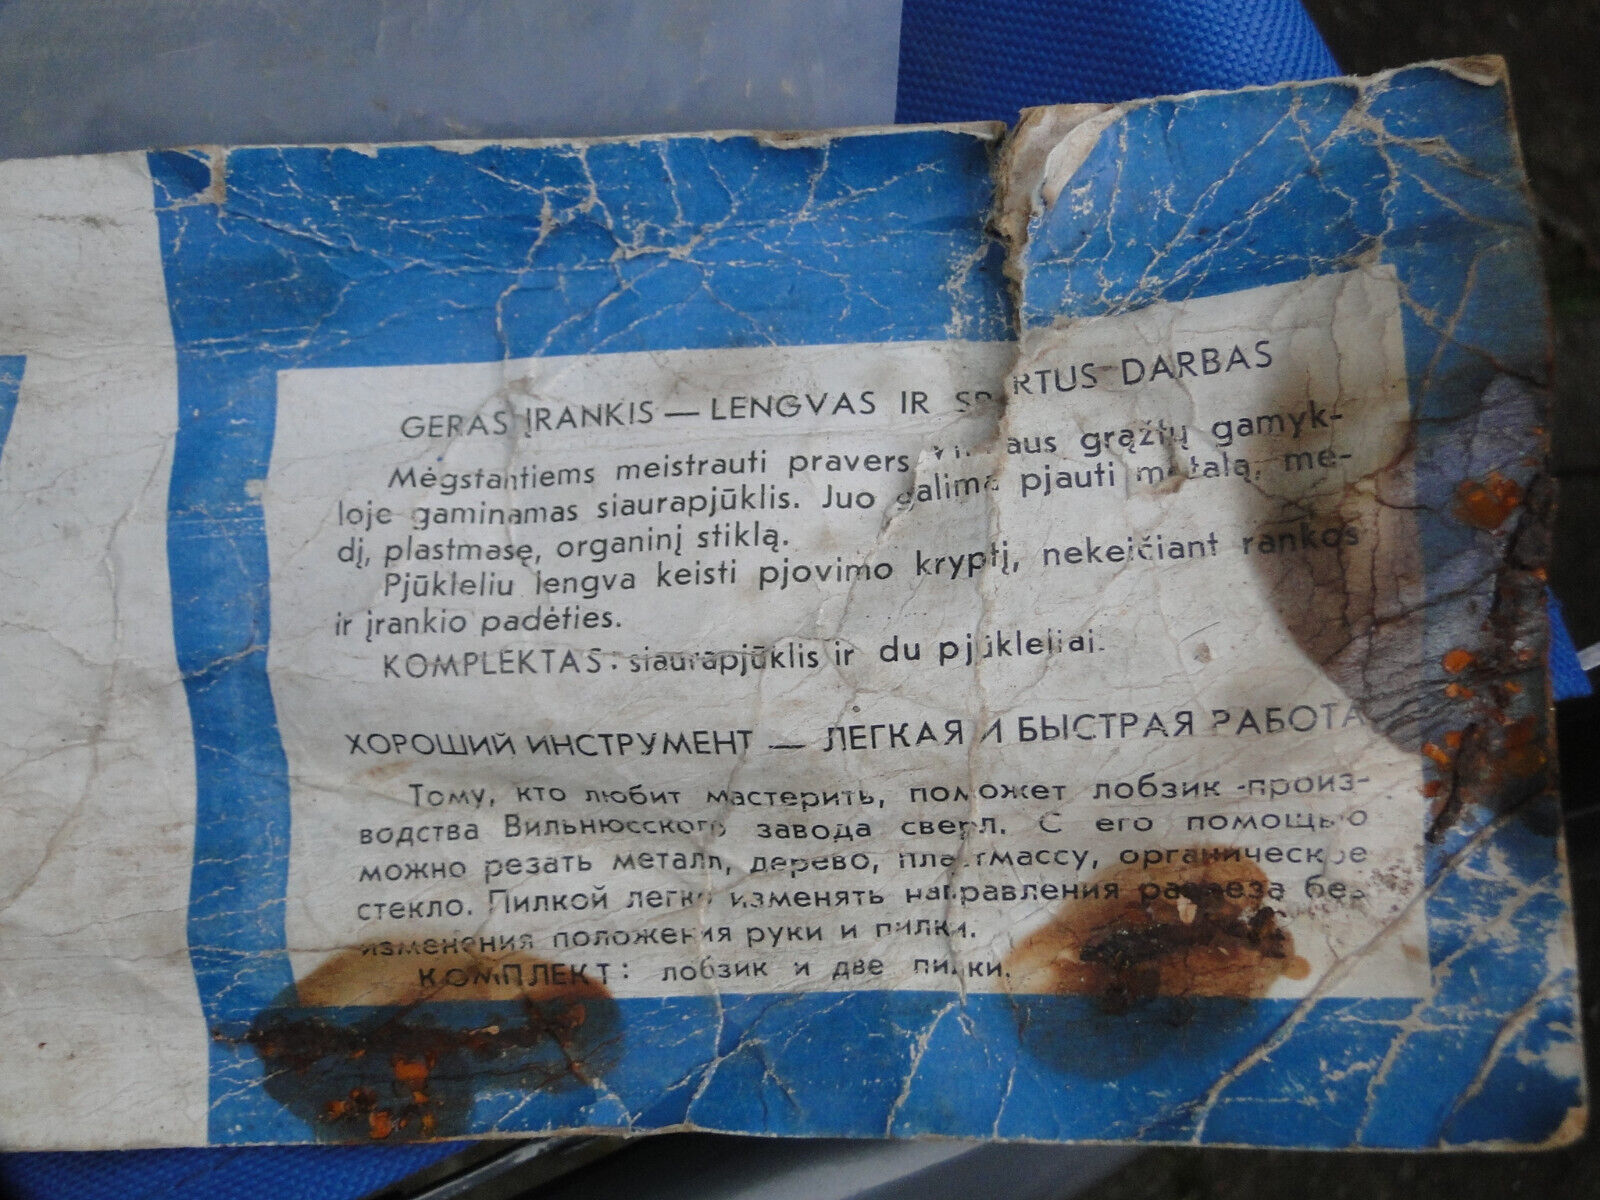 GERAS ĮRANKIS — LENGVAS IR SPARTUS DARBAS
Mėgstantiems meistrauti pravers Vilniaus grąžtų gamyk-
loje gaminamas siaurapjūklis. Juo galima pjauti metalą, me-
dį, plastmasę, organinį stiklą.
Pjūkleliu lengva keisti pjovimo kryptį, nekeičiant rankos
ir įrankio padėties.
KOMPLEKTAS: siaurapjūklis ir du pjūkleliai.
ХОРОШИЙ ИНСТРУМЕНТ — ЛЕГКАЯ И БЫСТРАЯ РАБОТА
Тому, кто любит мастерить, поможет лобзик -произ-
водства Вильнюсского завода сверл. С его помощью
можно резать металл, дерево, пластмассу, органическое
стекло. Пилкой легко изменять направления разреза без
изменения положения руки и пилки.
КОМПЛЕКТ: лобзик и две пилки.